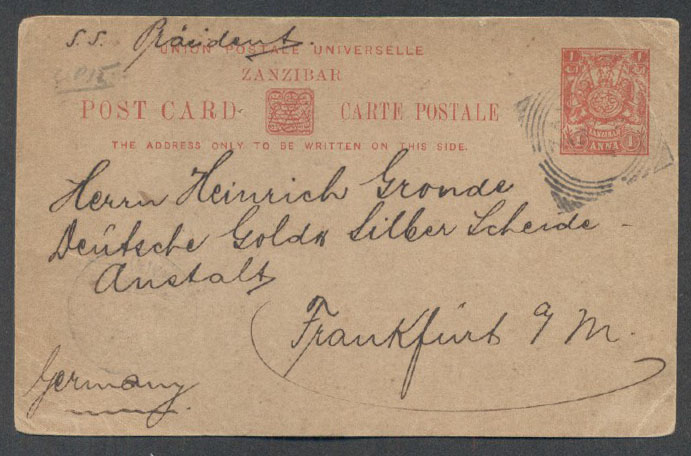 S.S. Präsident.
UNION POSTALE UNIVERSELLE
ZANZIBAR
POST CARD - CARTE POSTALE
THE ADDRESS ONLY TO BE WRITTEN ON THIS SIDE.
1 1
ZANZIBAR
1 ANNA 1
Herrn Heinrich Gronde
Deutsche Gold u Silber Scheide-
Anstalt
Frankfurt a/M.
Germany